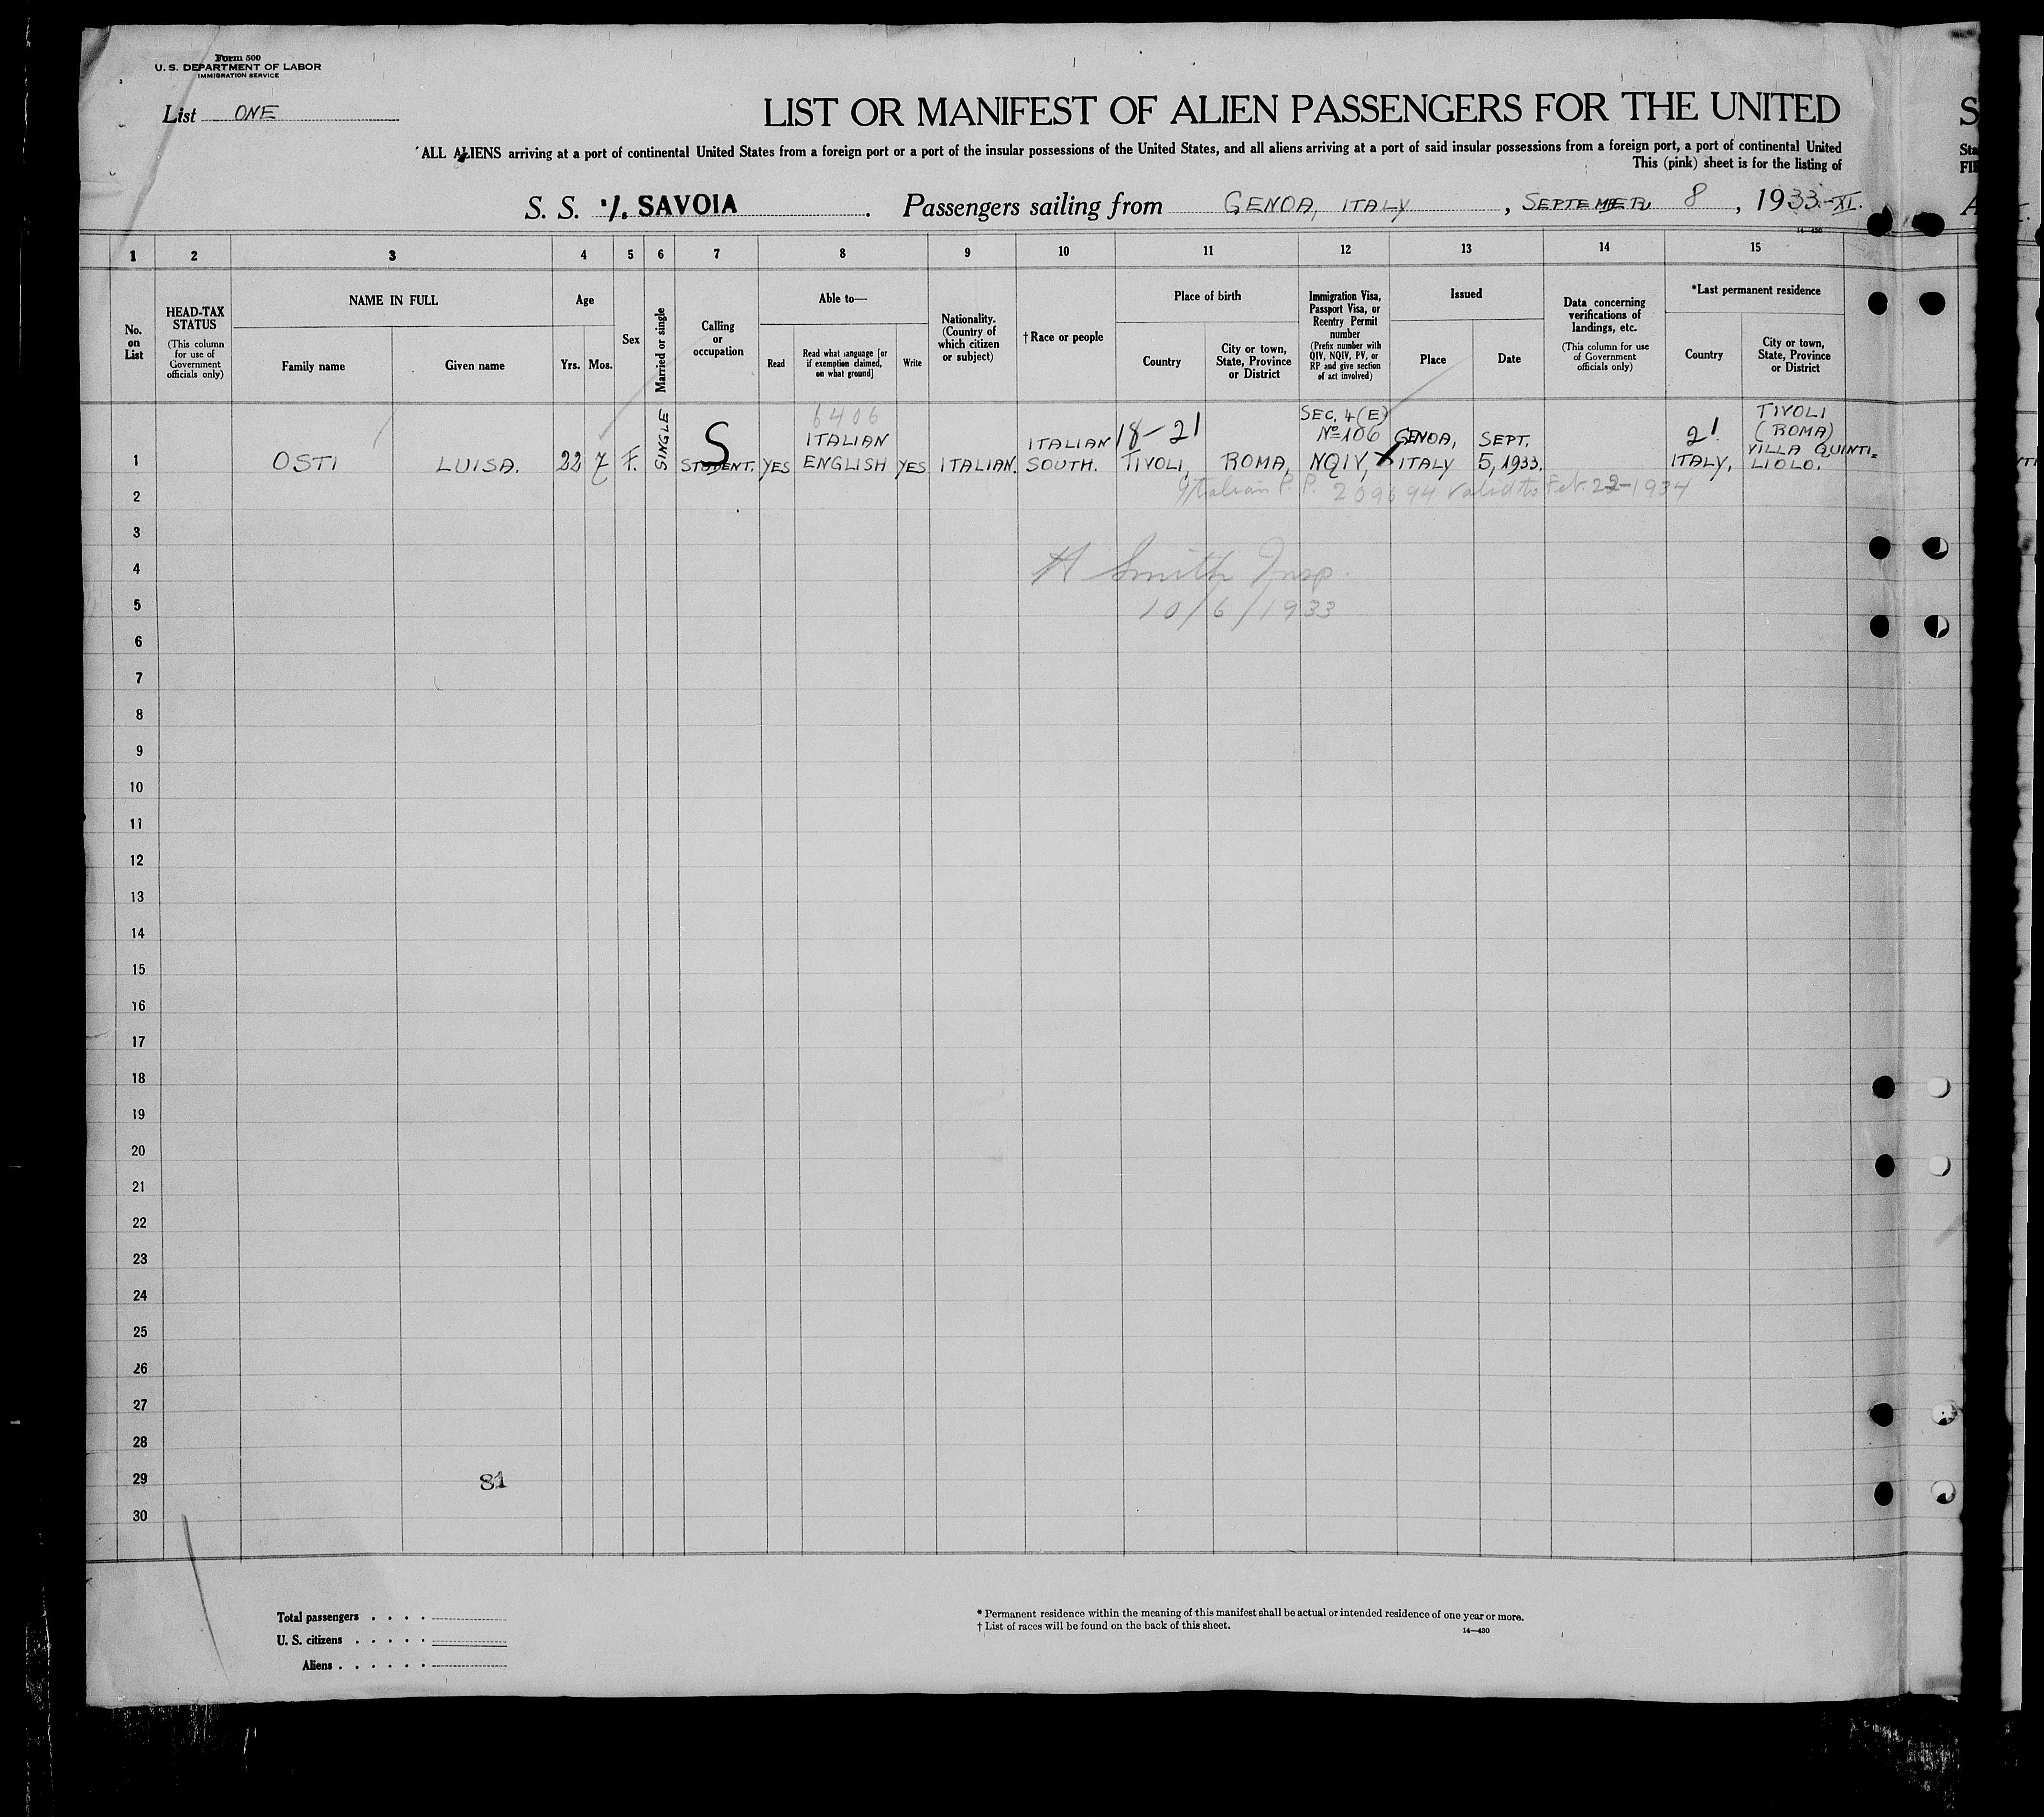 Form 500
U. S. DEPARTMENT OF LABOR
IMMIGRATION SERVICE
List ONE
LIST OR MANIFEST OF ALIEN PASSENGERS FOR THE UNITED
ALL ALIENS arriving at a port of continental United States from a foreign port or a port of the insular possessions of the United States, and all aliens arriving at a port of said insular possessions from a foreign port, a port of continental United
This (pink) sheet is for the listing of
S. S. SAVOIA . Passengers sailing from GENOA, ITALY , SEPTEMBER 8 , 1933-XI.
14—430
1 2 3 4 5 6 7 8 9 10 11 12 13 14 15
No. on List
HEAD-TAX STATUS
(This column for use of Government officials only)
NAME IN FULL
Family name
Given name
Age
Yrs.
Mos.
Sex
Married or single
Calling or occupation
Able to—
Read
Read what language [or if exemption claimed, on what ground]
Write
Nationality. (Country of which citizen or subject)
† Race or people
Place of birth
Country
City or town, State, Province or District
Immigration Visa, Passport Visa, or Reentry Permit number
(Prefix number with QIV, NQIV, PV, or RP and give section of act involved)
Issued
Place
Date
Data concerning verifications of landings, etc.
(This column for use of Government officials only)
*Last permanent residence
Country
City or town, State, Province or District
1 OSTI LUISA. 22 7 F. SINGLE S STUDENT. YES 6406 ITALIAN ENGLISH YES ITALIAN. ITALIAN SOUTH. 18-21 TIVOLI, ROMA, SEC. 4(E) Nº 106 NQIV, GENOA, ITALY SEPT. 5, 1933. 21 ITALY, TIVOLI (ROMA) VILLA QUINTI= LIOLO.
2 Italian P. P. 209694 valid to Feb. 22-1934
3
4 H Smith Insp.
5 10/6/1933
6
7
8
9
10
11
12
13
14
15
16
17
18
19
20
21
22
23
24
25
26
27
28
29 81
30
Total passengers . . . .
U. S. citizens . . . . .
Aliens . . . . . .
* Permanent residence within the meaning of this manifest shall be actual or intended residence of one year or more.
† List of races will be found on the back of this sheet.
14—430